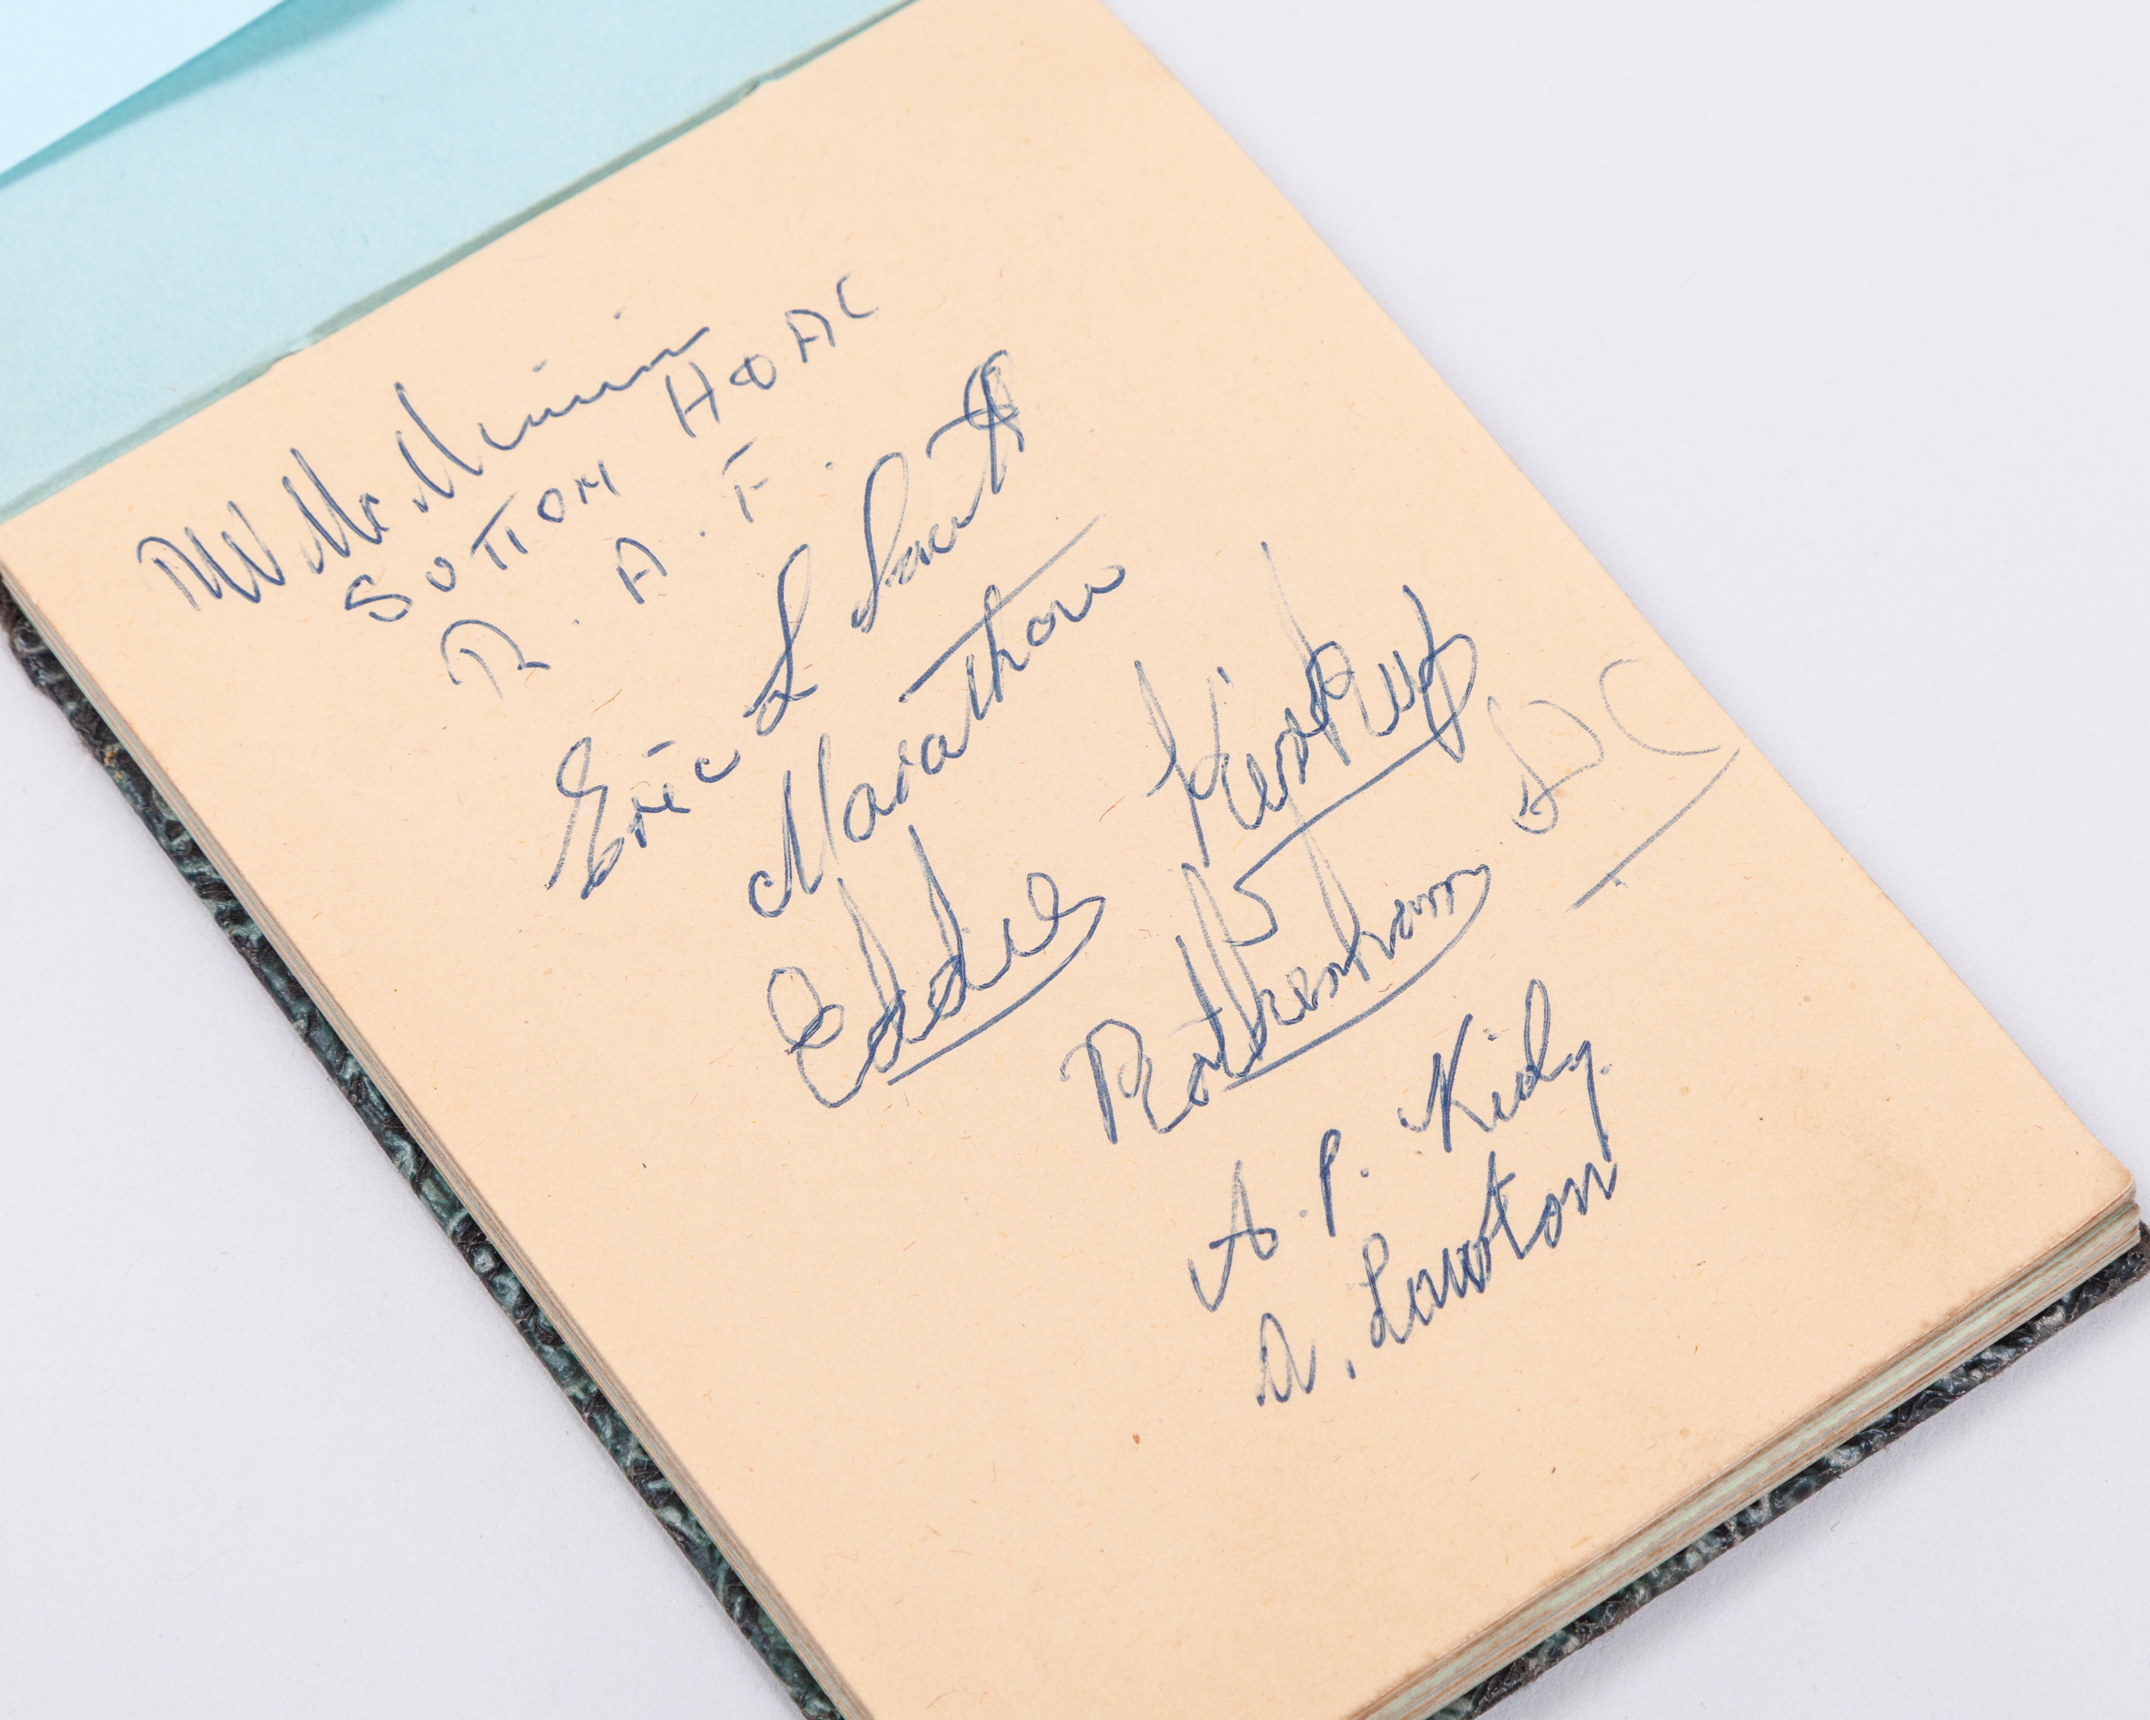 R W McMinnis
SUTTON H & AC
R. A. F.
Eric L Smith
Marathon
Eddie Kirkup
Rotherham DC
A. P. Kidy.
A. Lawton